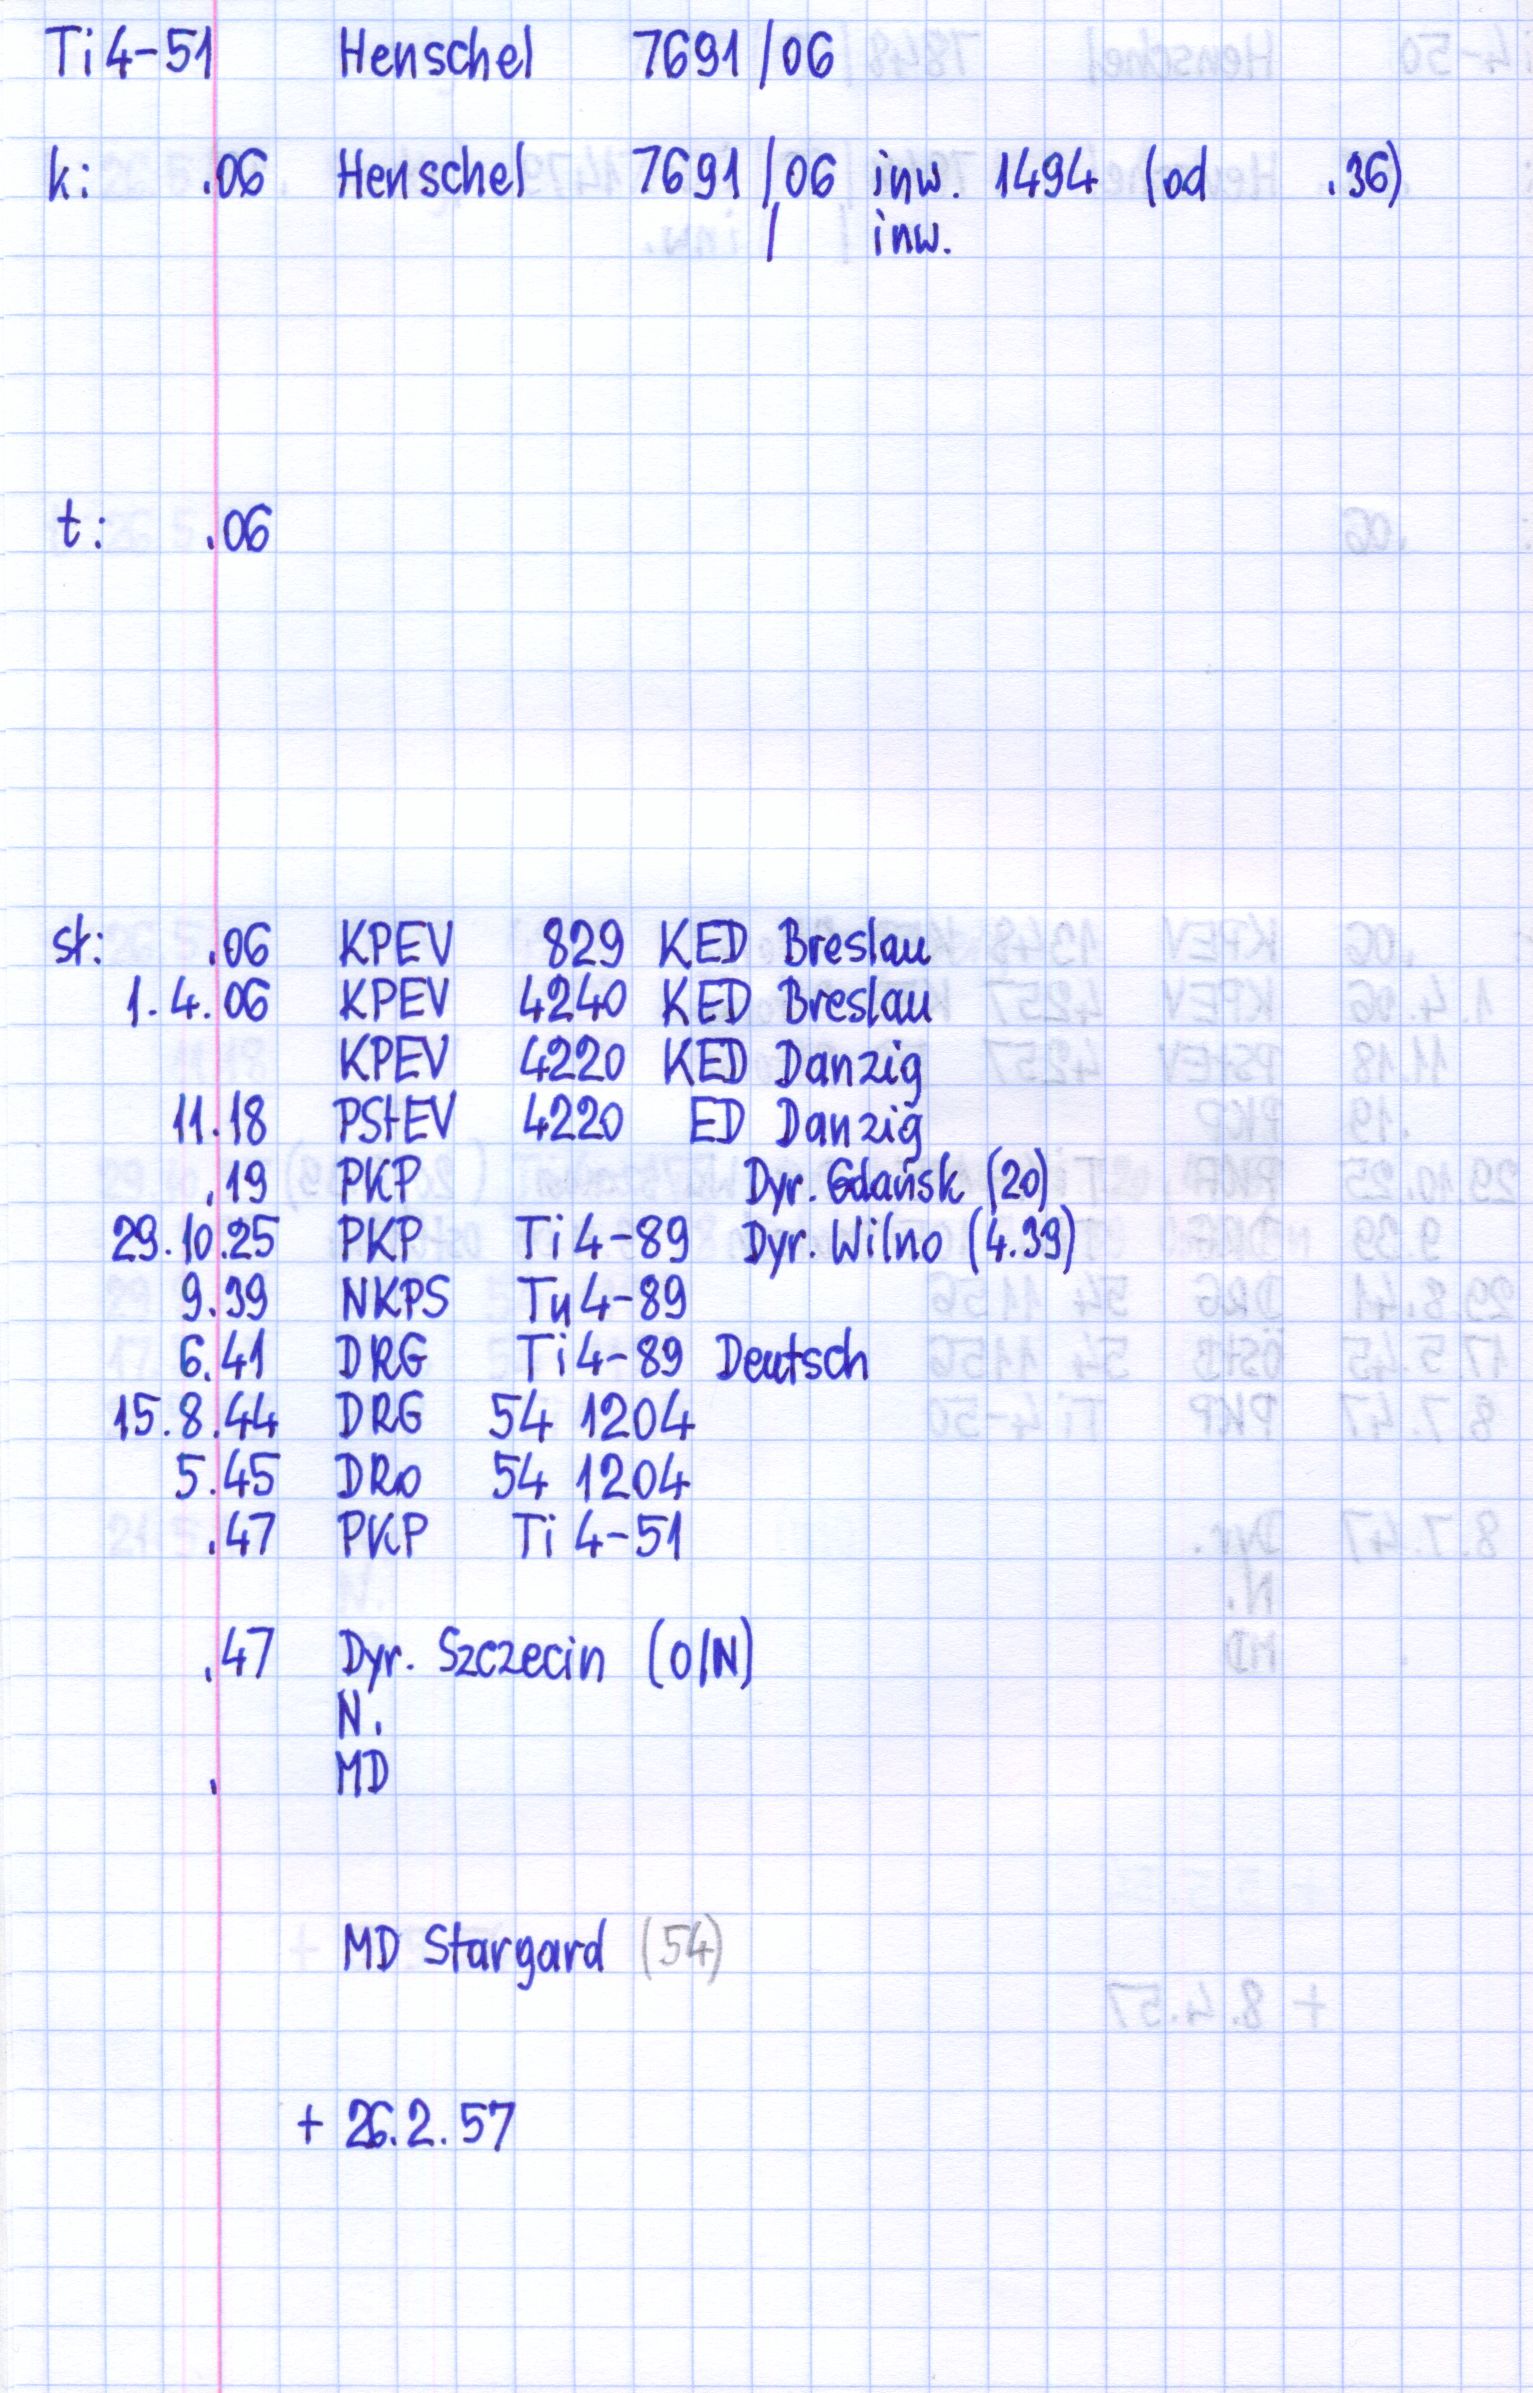 Ti4-51 Henschel 7691/06
k: .06 Henschel 7691/06 inw. 1494 (od .36)
/ inw.
t: .06
st: .06 KPEV 829 KED Breslau
1.4.06 KPEV 4240 KED Breslau
KPEV 4220 KED Danzig
11.18 PStEV 4220 ED Danzig
.19 PKP Dyr. Gdańsk (20)
29.10.25 PKP Ti4-89 Dyr. Wilno (4.39)
9.39 NKPS Tu4-89
6.41 DRG Ti4-89 Deutsch
15.8.44 DRG 54 1204
5.45 DRo 54 1204
.47 PKP Ti4-51
.47 Dyr. Szczecin (O/N)
N.
. MD
MD Stargard (54)
+ 26.2.57